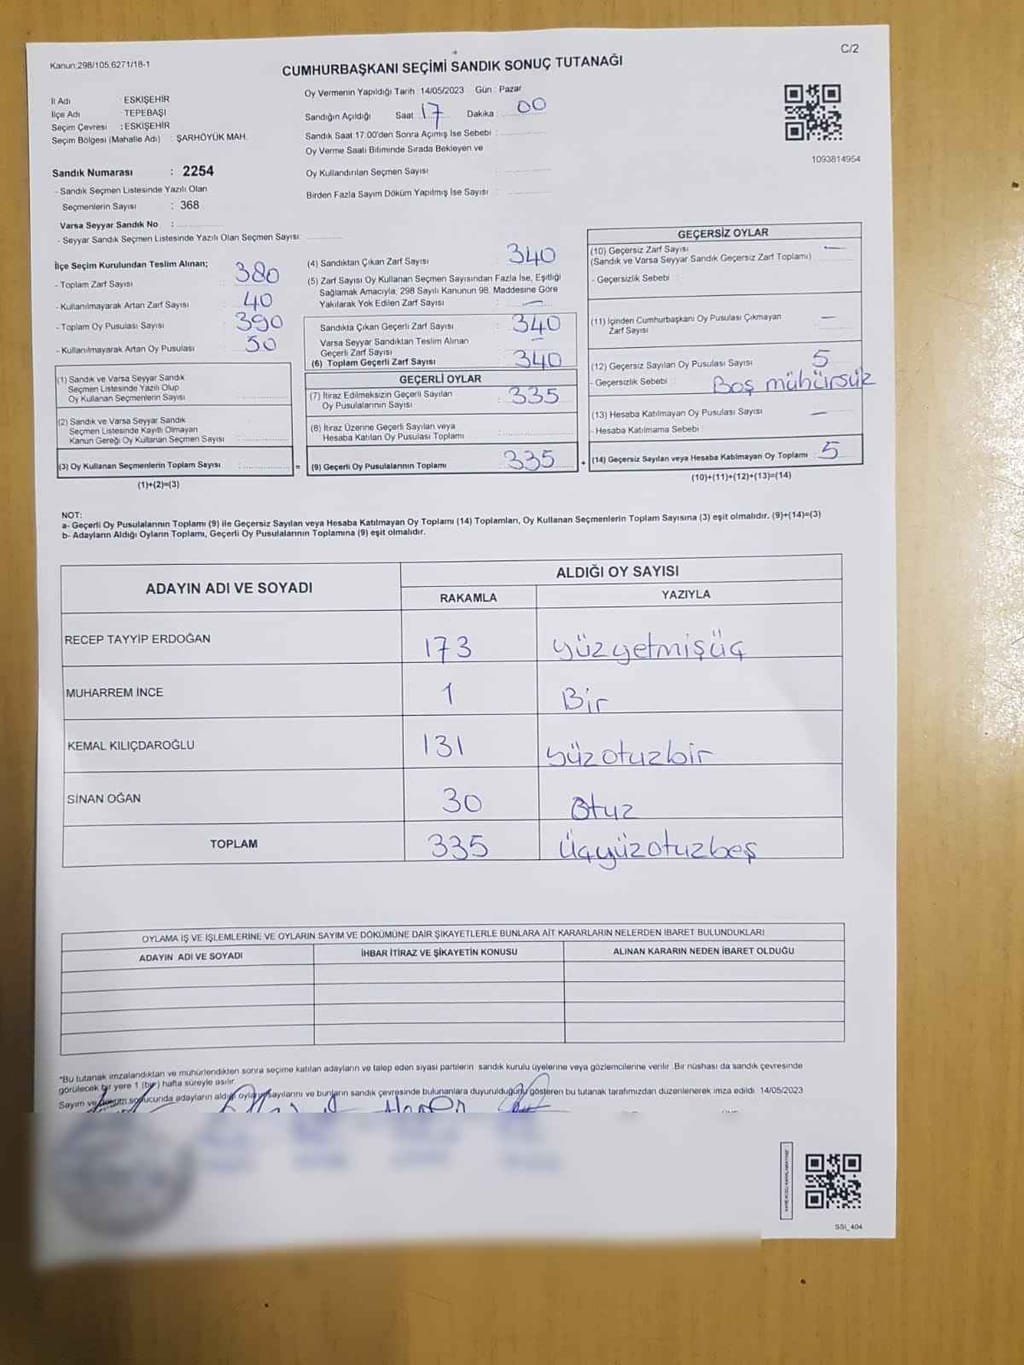 Kanun:298/105,6271/18-1
C/2
CUMHURBAŞKANI SEÇİMİ SANDIK SONUÇ TUTANAĞI
İl Adı : ESKİŞEHİR
İlçe Adı : TEPEBAŞI
Seçim Çevresi : ESKİŞEHİR
Seçim Bölgesi (Mahalle Adı) : ŞARHÖYÜK MAH.
Sandık Numarası : 2254
- Sandık Seçmen Listesinde Yazılı Olan
Seçmenlerin Sayısı : 368
Varsa Seyyar Sandık No :
- Seyyar Sandık Seçmen Listesinde Yazılı Olan Seçmen Sayısı:
Oy Vermenin Yapıldığı Tarih : 14/05/2023 Gün : Pazar
Sandığın Açıldığı Saat 17 Dakika : 00
Sandık Saat 17.00'den Sonra Açılmış İse Sebebi :
Oy Verme Saati Bitiminde Sırada Bekleyen ve
Oy Kullandırılan Seçmen Sayısı :
Birden Fazla Sayım Döküm Yapılmış İse Sayısı :
1093814954
İlçe Seçim Kurulundan Teslim Alınan;
- Toplam Zarf Sayısı : 380
- Kullanılmayarak Artan Zarf Sayısı : 40
- Toplam Oy Pusulası Sayısı : 390
- Kullanılmayarak Artan Oy Pusulası : 50
(1) Sandık ve Varsa Seyyar Sandık
Seçmen Listesinde Yazılı Olup
Oy Kullanan Seçmenlerin Sayısı :
(2) Sandık ve Varsa Seyyar Sandık
Seçmen Listesinde Kayıtlı Olmayan
Kanun Gereği Oy Kullanan Seçmen Sayısı :
(3) Oy Kullanan Seçmenlerin Toplam Sayısı :
(1)+(2)=(3)
(4) Sandıktan Çıkan Zarf Sayısı : 340
(5) Zarf Sayısı Oy Kullanan Seçmen Sayısından Fazla İse, Eşitliği
Sağlamak Amacıyla, 298 Sayılı Kanunun 98. Maddesine Göre
Yakılarak Yok Edilen Zarf Sayısı : —
Sandıkta Çıkan Geçerli Zarf Sayısı : 340
Varsa Seyyar Sandıktan Teslim Alınan
Geçerli Zarf Sayısı : —
(6) Toplam Geçerli Zarf Sayısı : 340
GEÇERLİ OYLAR
(7) İtiraz Edilmeksizin Geçerli Sayılan
Oy Pusulalarının Sayısı : 335
(8) İtiraz Üzerine Geçerli Sayılan veya
Hesaba Katılan Oy Pusulası Toplamı :
= (9) Geçerli Oy Pusulalarının Toplamı : 335 +
GEÇERSİZ OYLAR
(10) Geçersiz Zarf Sayısı : —
(Sandık ve Varsa Seyyar Sandık Geçersiz Zarf Toplamı)
- Geçersizlik Sebebi :
(11) İçinden Cumhurbaşkanı Oy Pusulası Çıkmayan : —
Zarf Sayısı
(12) Geçersiz Sayılan Oy Pusulası Sayısı : 5
- Geçersizlik Sebebi : Boş mühürsük
(13) Hesaba Katılmayan Oy Pusulası Sayısı : —
- Hesaba Katılmama Sebebi :
(14) Geçersiz Sayılan veya Hesaba Katılmayan Oy Toplamı : 5
(10)+(11)+(12)+(13)=(14)
NOT:
a- Geçerli Oy Pusulalarının Toplamı (9) ile Geçersiz Sayılan veya Hesaba Katılmayan Oy Toplamı (14) Toplamları, Oy Kullanan Seçmenlerin Toplam Sayısına (3) eşit olmalıdır. (9)+(14)=(3)
b- Adayların Aldığı Oyların Toplamı, Geçerli Oy Pusulalarının Toplamına (9) eşit olmalıdır.
ADAYIN ADI VE SOYADI ALDIĞI OY SAYISI
RAKAMLA YAZIYLA
RECEP TAYYİP ERDOĞAN 173 yüzyetmişüç
MUHARREM İNCE 1 Bir
KEMAL KILIÇDAROĞLU 131 yüzotuzbir
SİNAN OĞAN 30 Otuz
TOPLAM 335 Üçyüzotuzbeş
OYLAMA İŞ VE İŞLEMLERİNE VE OYLARIN SAYIM VE DÖKÜMÜNE DAİR ŞİKAYETLERLE BUNLARA AİT KARARLARIN NELERDEN İBARET BULUNDUKLARI
ADAYIN ADI VE SOYADI İHBAR İTİRAZ VE ŞİKAYETİN KONUSU ALINAN KARARIN NEDEN İBARET OLDUĞU
"Bu tutanak imzalandıktan ve mühürlendikten sonra seçime katılan adayların ve talep eden siyasi partilerin sandık kurulu üyelerine veya gözlemcilerine verilir. Bir nüshası da sandık çevresinde
görülecek bir yere 1 (bir) hafta süreyle asılır.
Sayım ve döküm sonucunda adayların aldığı oyların sayılarını ve bunların sandık çevresinde bulunanlara duyurulduğunu gösteren bu tutanak tarafımızdan düzenlenerek imza edildi. 14/05/2023
SSI_404